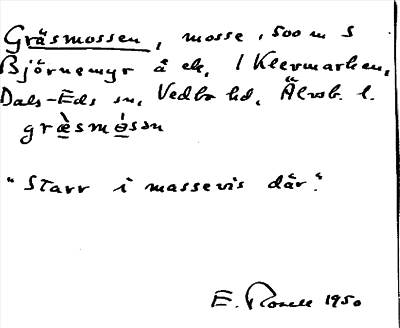 Gräsmossen, mosse, 500 m S
Björnemyr å ek, / Klevmarken,
Dals-Eds sn, Vedbo hd, Älvsb. l.
græ̀smósən
"Starr i massevis där."
E. Rosell 1950